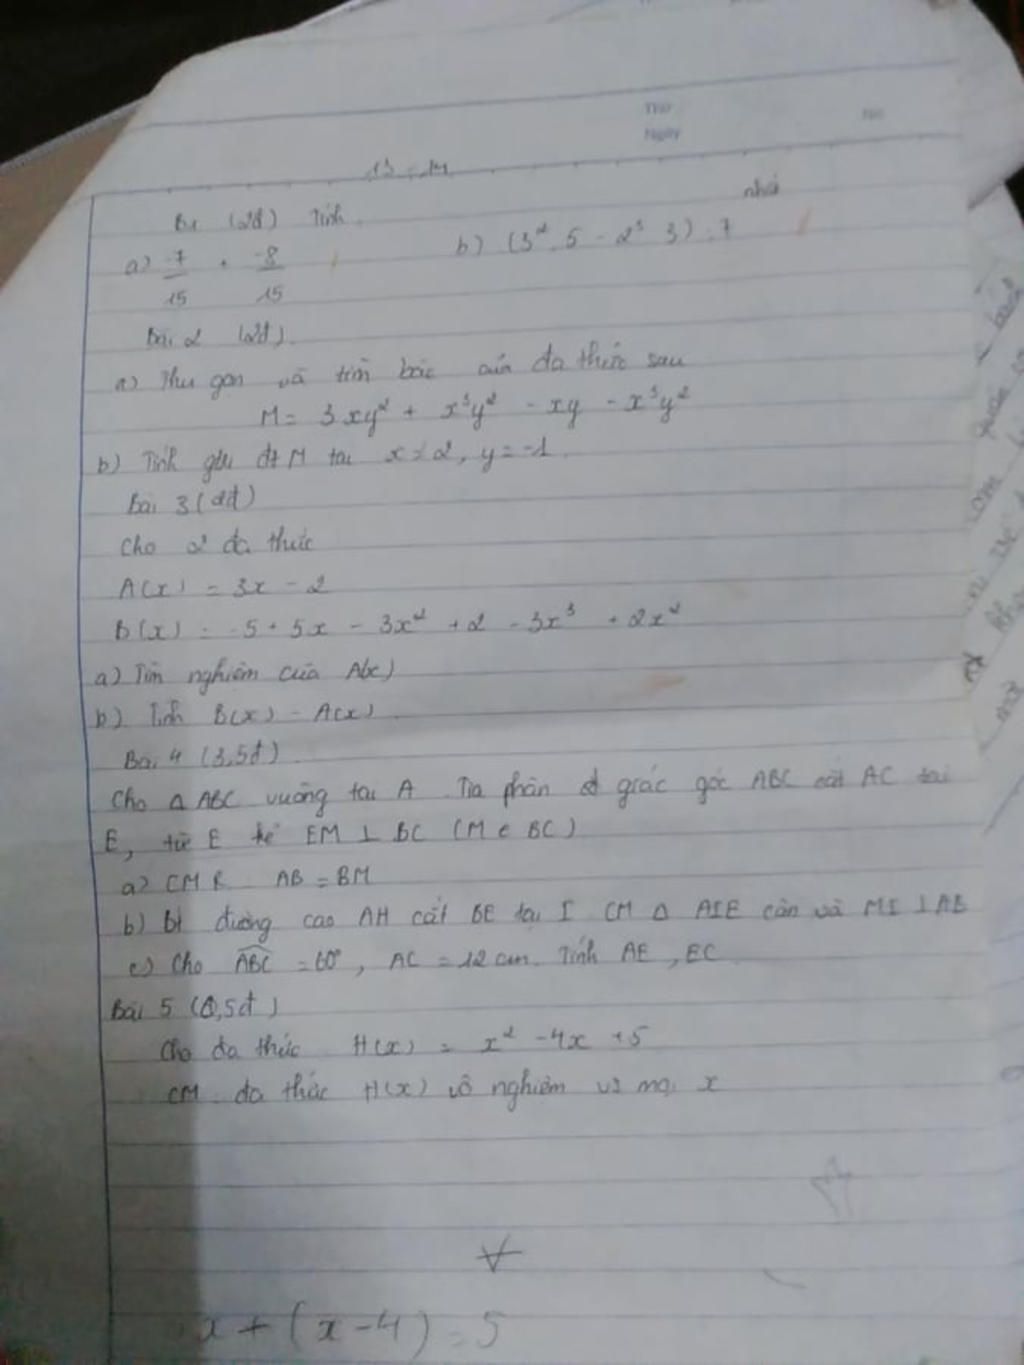 Thứ
Ngày
No
13 - 14
nhá
B1 (2đ) Tính.
a) -7/15 + -8/15 b) (3² . 5 - 2³ 3) : 7
Bài 2 (2đ).
a) Thu gọn và tìm bậc của đa thức sau
M = 3xy² + x³y² - xy - x³y²
b) Tính gtrị đt M tại x = 2, y = -1.
Bài 3 (2đ)
Cho 2 đa thức
A(x) = 3x - 2
B(x) = -5 + 5x - 3x² + 2 - 3x³ + 2x²
a) Tìm nghiệm của A(x)
b) Tính B(x) - A(x).
Bài 4 (3,5đ).
Cho Δ ABC vuông tại A. Tia phân giác góc ABC cắt AC tại
E, từ E kẻ EM ⊥ BC (M ∈ BC)
a) CMR AB = BM
b) đường cao AH cắt BE tại I CM Δ AIE cân và MI ⊥ AB
c) Cho ABC = 60°, AC = 12 cm. Tính AE, EC
Bài 5 (0,5đ)
Cho đa thức H(x) = x² - 4x + 5
CM đa thức H(x) vô nghiệm vs mọi x
x + (x - 4) = 5